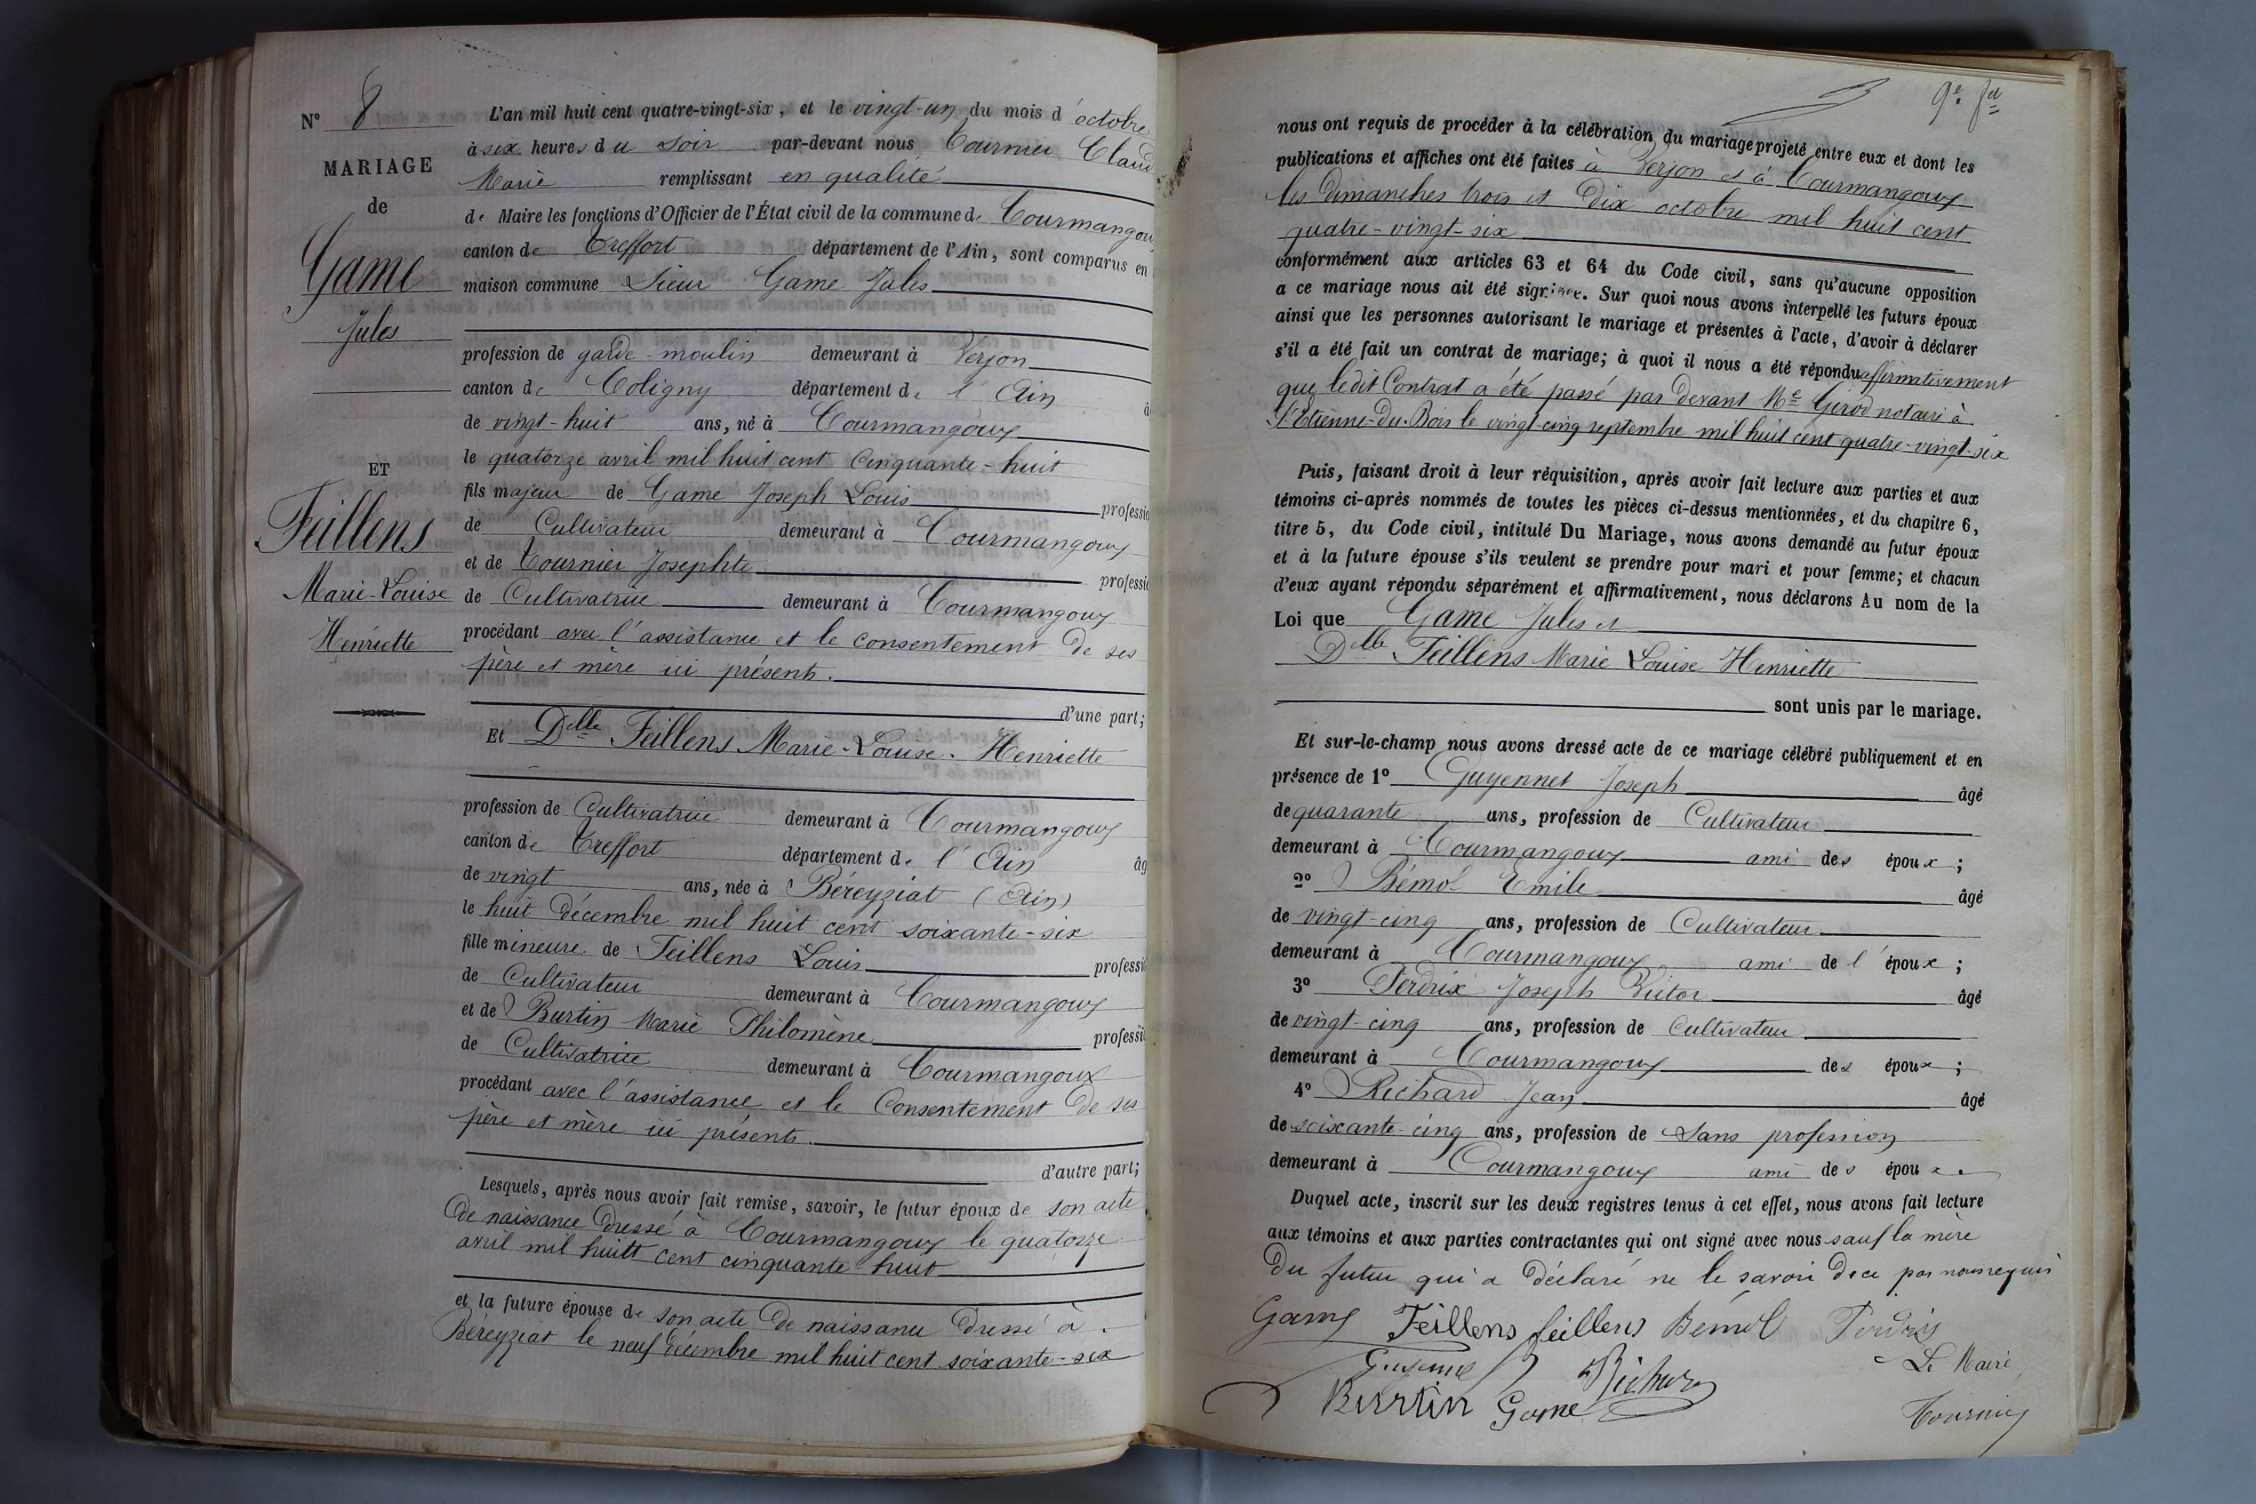 N° 8
MARIAGE
de
Game
Jules
ET
Feillens
Marie-Louise
Henriette
L'an mil huit cent quatre-vingt-six, et le vingt-un du mois d'octobre
à six heures du soir par-devant nous Tournier Claude
Marie remplissant en qualité
de Maire les fonctions d'Officier de l'État civil de la commune de Courmangoux
canton de Treffort département de l'Ain, sont comparus en
maison commune Sieur Game Jules
profession de garde-moulin demeurant à Verjon
canton de Coligny département de l'Ain
de vingt-huit ans, né à Courmangoux
le quatorze avril mil huit cent cinquante-huit
fils majeur de Game Joseph Louis profession
de Cultivateur demeurant à Courmangoux
et de Tournier Josephte profession
de Cultivatrice demeurant à Courmangoux
procédant avec l'assistance et le consentement de ses
père et mère ici présents.
d'une part;
Et Delle Feillens Marie-Louise-Henriette
profession de Cultivatrice demeurant à Courmangoux
canton de Treffort département de l'Ain âg
de vingt ans, née à Béreyziat (Ain)
le huit décembre mil huit cent soixante-six
fille mineure de Feillens Louis profession
de Cultivateur demeurant à Courmangoux
et de Burtin Marie Philomène profession
de Cultivatrice demeurant à Courmangoux
procédant avec l'assistance et le Consentement de ses
père et mère ici présents.
d'autre part;
Lesquels, après nous avoir fait remise, savoir, le futur époux de son acte
de naissance dressé à Courmangoux le quatorze
avril mil huitt cent cinquante-huit
et la future épouse de son acte de naissance dressé à
Béreyziat le neuf décembre mil huit cent soixante-six
9e fet
nous ont requis de procéder à la célébration du mariage projeté entre eux et dont les
publications et affiches ont été faites à Verjon et à Courmangoux
les dimanches trois et dix octobre mil huit cent
quatre-vingt-six
conformément aux articles 63 et 64 du Code civil, sans qu'aucune opposition
a ce mariage nous ait été signifiée. Sur quoi nous avons interpellé les futurs époux
ainsi que les personnes autorisant le mariage et présentes à l'acte, d'avoir à déclarer
s'il a été fait un contrat de mariage; à quoi il nous a été répondu affirmativement
que ledit Contrat a été passé par devant Me Girod notaire à
St Etienne-du-Bois le vingt-cinq septembre mil huit cent quatre-vingt-six
Puis, faisant droit à leur réquisition, après avoir fait lecture aux parties et aux
témoins ci-après nommés de toutes les pièces ci-dessus mentionnées, et du chapitre 6,
titre 5, du Code civil, intitulé Du Mariage, nous avons demandé au futur époux
et à la future épouse s'ils veulent se prendre pour mari et pour femme; et chacun
d'eux ayant répondu séparément et affirmativement, nous déclarons Au nom de la
Loi que Game Jules et
Delle Feillens Marie Louise Henriette
sont unis par le mariage.
Et sur-le-champ nous avons dressé acte de ce mariage célébré publiquement et en
présence de 1° Guyennet Joseph âgé
de quarante ans, profession de Cultivateur
demeurant à Courmangoux ami des époux;
2° Bémol Emile âgé
de vingt-cinq ans, profession de Cultivateur
demeurant à Courmangoux ami de l'époux;
3° Perdrix Joseph Victor âgé
de vingt-cinq ans, profession de Cultivateur
demeurant à Courmangoux des époux;
4° Richard Jean âgé
de soixante-cinq ans, profession de Sans profession
demeurant à Courmangoux ami des époux.
Duquel acte, inscrit sur les deux registres tenus à cet effet, nous avons fait lecture
aux témoins et aux parties contractantes qui ont signé avec nous sauf la mère
du futur qui a déclaré ne le savoir de ce par nous requis
Game Feillens feillens Bémol Perdrix
Guyennet Richard Le Maire,
Burtin Game Tournier